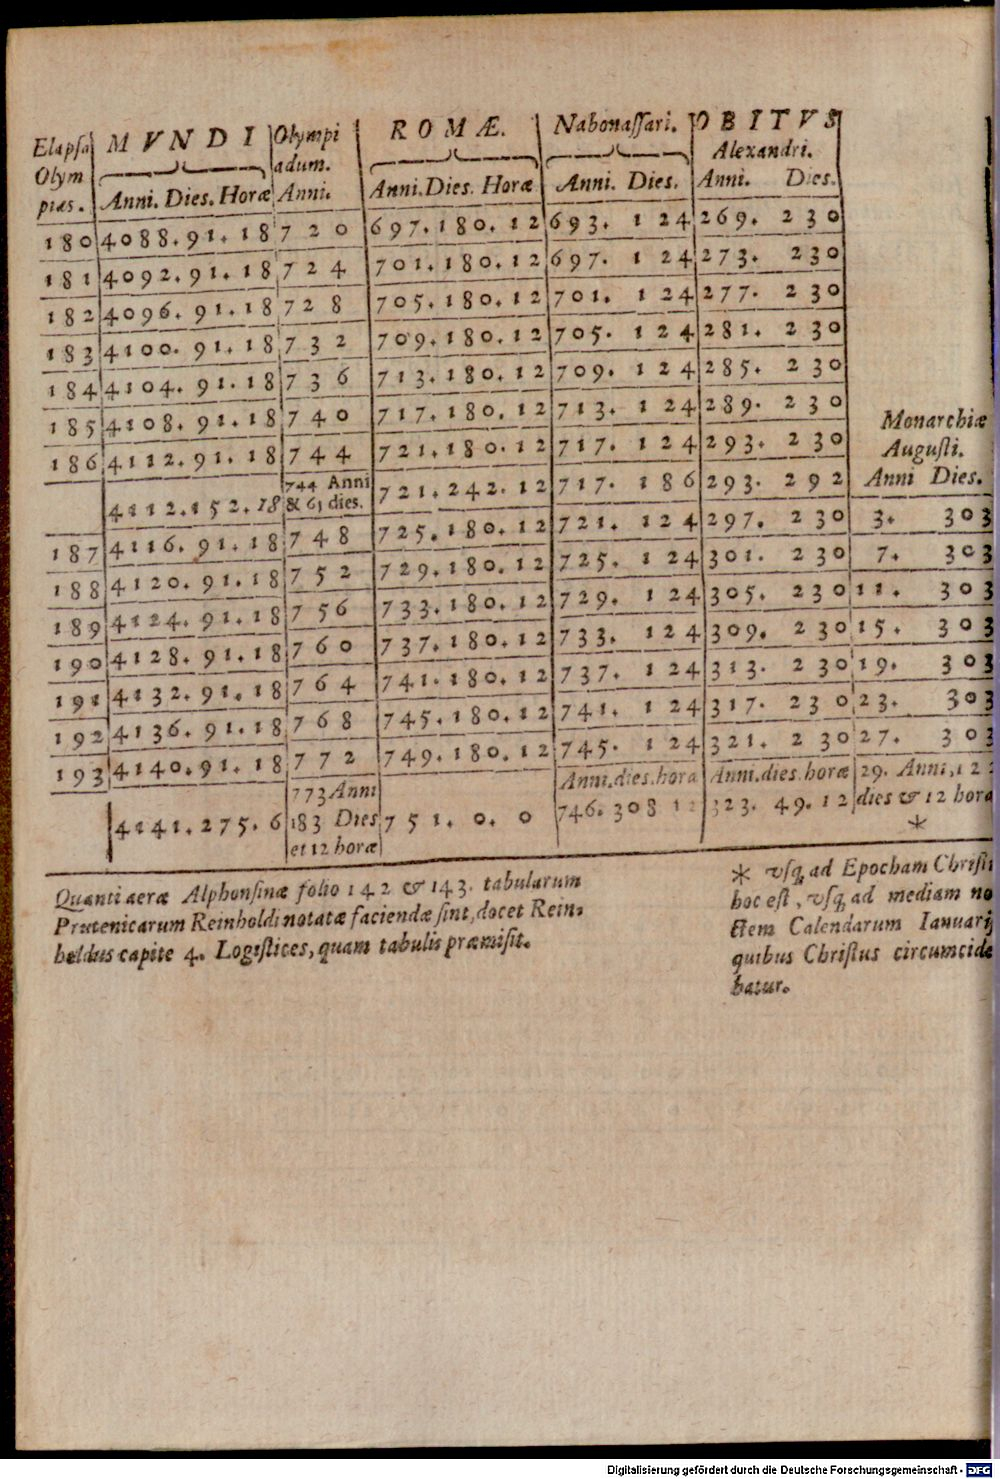 Elapsa M V N D I Olympi R O M Æ. Nabonassari. O B I T V S
Olym adum. Alexandri.
pias. Anni. Dies. Horæ Anni. Anni. Dies. Horæ Anni. Dies. Anni. Dies.
180 4088. 91. 18 720 697. 180. 12 693. 124 269. 230
181 4092. 91. 18 724 701. 180. 12 697. 124 273. 230
182 4096. 91. 18 728 705. 180. 12 701. 124 277. 230
183 4100. 91. 18 732 709. 180. 12 705. 124 281. 230
184 4104. 91. 18 736 713. 180. 12 709. 124 285. 230
185 4108. 91. 18 740 717. 180. 12 713. 124 289. 230
186 4112. 91. 18 744 721. 180. 12 717. 124 293. 230
Monarchiæ
Augusti.
Anni Dies.
4112. 152. 18 744 Anni & 61 dies. 721. 242. 12 717. 186 293. 292
187 4116. 91. 18 748 725. 180. 12 721. 124 297. 230 3. 303
188 4120. 91. 18 752 729. 180. 12 725. 124 301. 230 7. 303
189 4124. 91. 18 756 733. 180. 12 729. 124 305. 230 11. 303
190 4128. 91. 18 760 737. 180. 12 733. 124 309. 230 15. 303
191 4132. 91. 18 764 741. 180. 12 737. 124 313. 230 19. 303
192 4136. 91. 18 768 745. 180. 12 741. 124 317. 230 23. 303
193 4140. 91. 18 772 749. 180. 12 745. 124 321. 230 27. 303
4141. 275. 6 773 Anni 183 Dies et 12 horæ 751. 0. 0 Anni. dies. hora 746. 308 12 Anni. dies. horæ 323. 49. 12 29. Anni, 122 dies & 12 hora
*
Quanti aeræ Alphonsinæ folio 142 & 143. tabularum
Prutenicarum Reinholdi notatæ faciendæ sint, docet Rein-
holdus capite 4. Logistices, quam tabulis præmisit.
* vsq; ad Epocham Christi
hoc est, vsq; ad mediam no
ctem Calendarum Ianuarij
quibus Christus circumcide
batur.
Digitalisierung gefördert durch die Deutsche Forschungsgemeinschaft - DFG